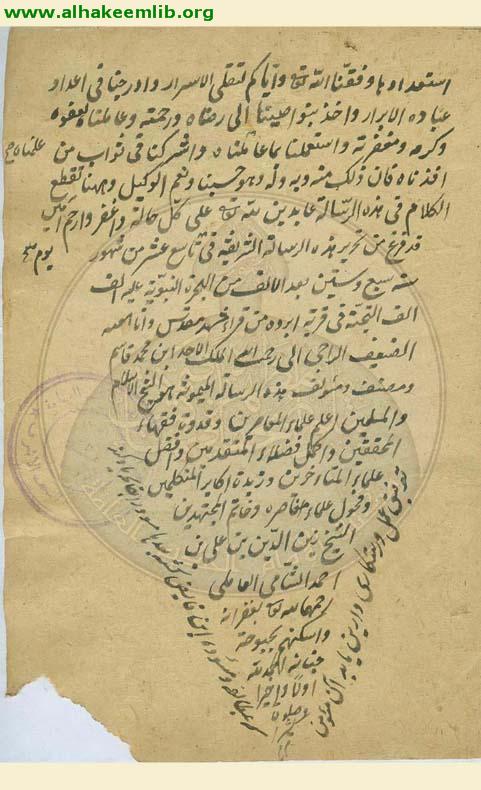 www.alhakeemlib.org
استعدادها وفقنا الله تع وایاکم لتلقی الاسرار وادرجنا فی اعداد
عباده الابرار واخذ بنواصینا الی رضاه ورحمته وعاملناه بعفوه
وکرمه ومغفرته واستعملنا بما علمناه واشرکنا فی ثواب من علمناه
افدناه فان ذلک منه وبه وله وهو حسبنا ونعم الوکیل وههنا نقطع
الکلام فی هذه الرسالة حامدین لله تع علی کل حالة واغفر وارحم
قد فرغ من تحریر هذه الرسالة الشریفة فی تاسع عشر من شهور یوم
سنه سبع وستین بعد الالف من الهجرة النبویة علیه الف
الف التحیة فی قریة ابروه من قراء مشهد مقدس وانا العبد
الضعیف الراجی الی رحمة الله الملک الاحد ابن محمد قاسم
ومصنف ومؤلف هذه الرسالة المیمونة هو الشیخ الاسلام
والمسلمین اعلم علماء المعاصرین وقدوة فقهاء
المحققین واکمل فضلاء المتقدمین وافضل
علماء المتاخرین وزبدة اکابر المتکلمین
وفحول علماء معاصره وخاتم المجتهدین
الشیخ زین الدین بن علی بن
احمد الشامی العاملی
رحمهما الله تع بغفرانه
واسکنهم بحبوحة
جنانه الحمد لله
اولا واخرا
توفیق عمل ورستکاری دارین یابد